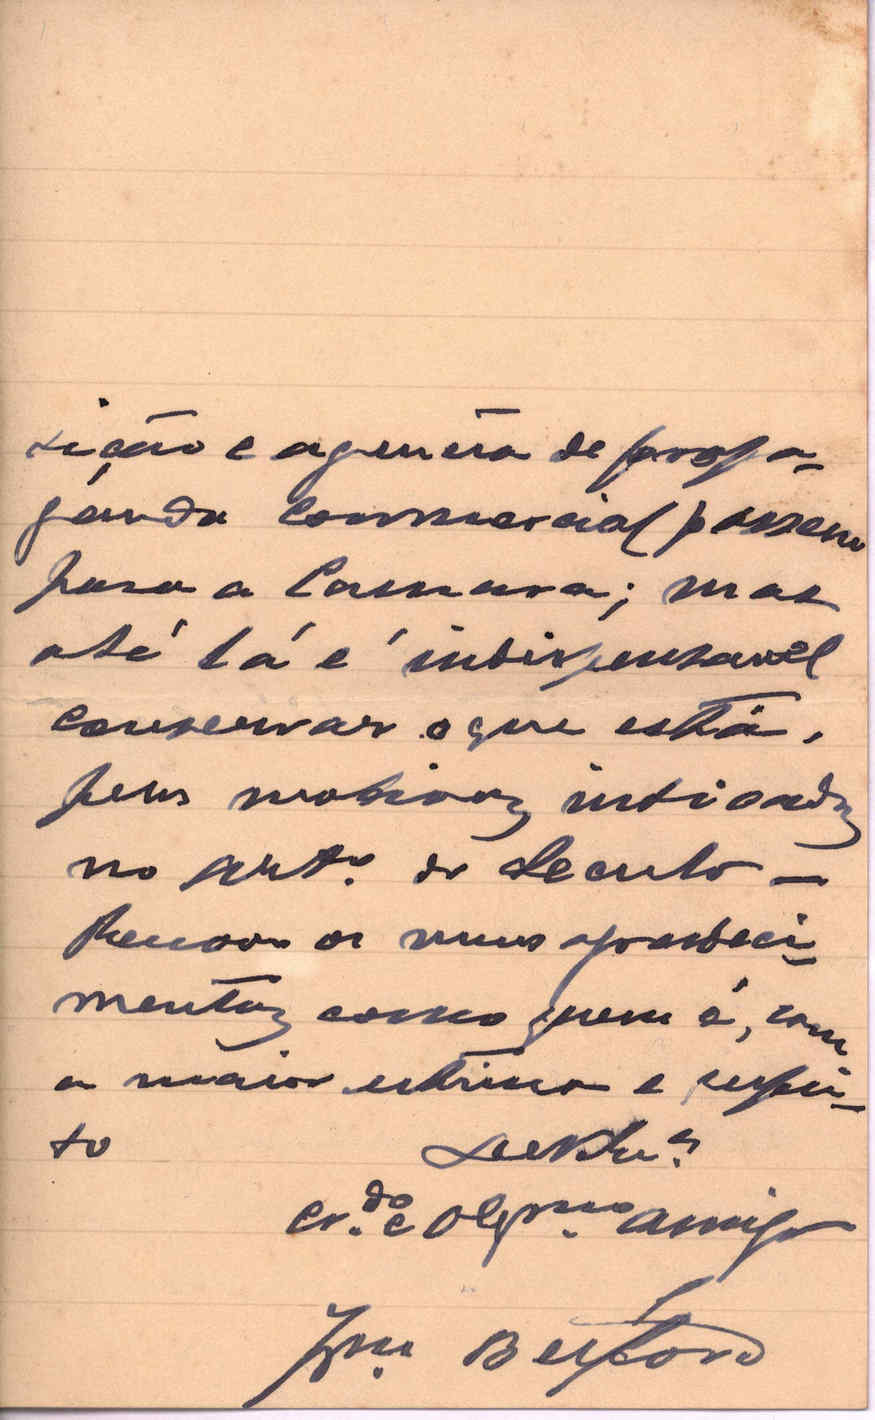 sição e agencia de propa-
ganda commercial passem
para a Camara; mas
até lá é indispensavel
conservar o que está,
pelos motivos indicados
no art.º do Seculo –
Renovo os meus agradeci-
mentos como quem é, com
a maior estima e respei-
to
cr.do e obgmo amigo